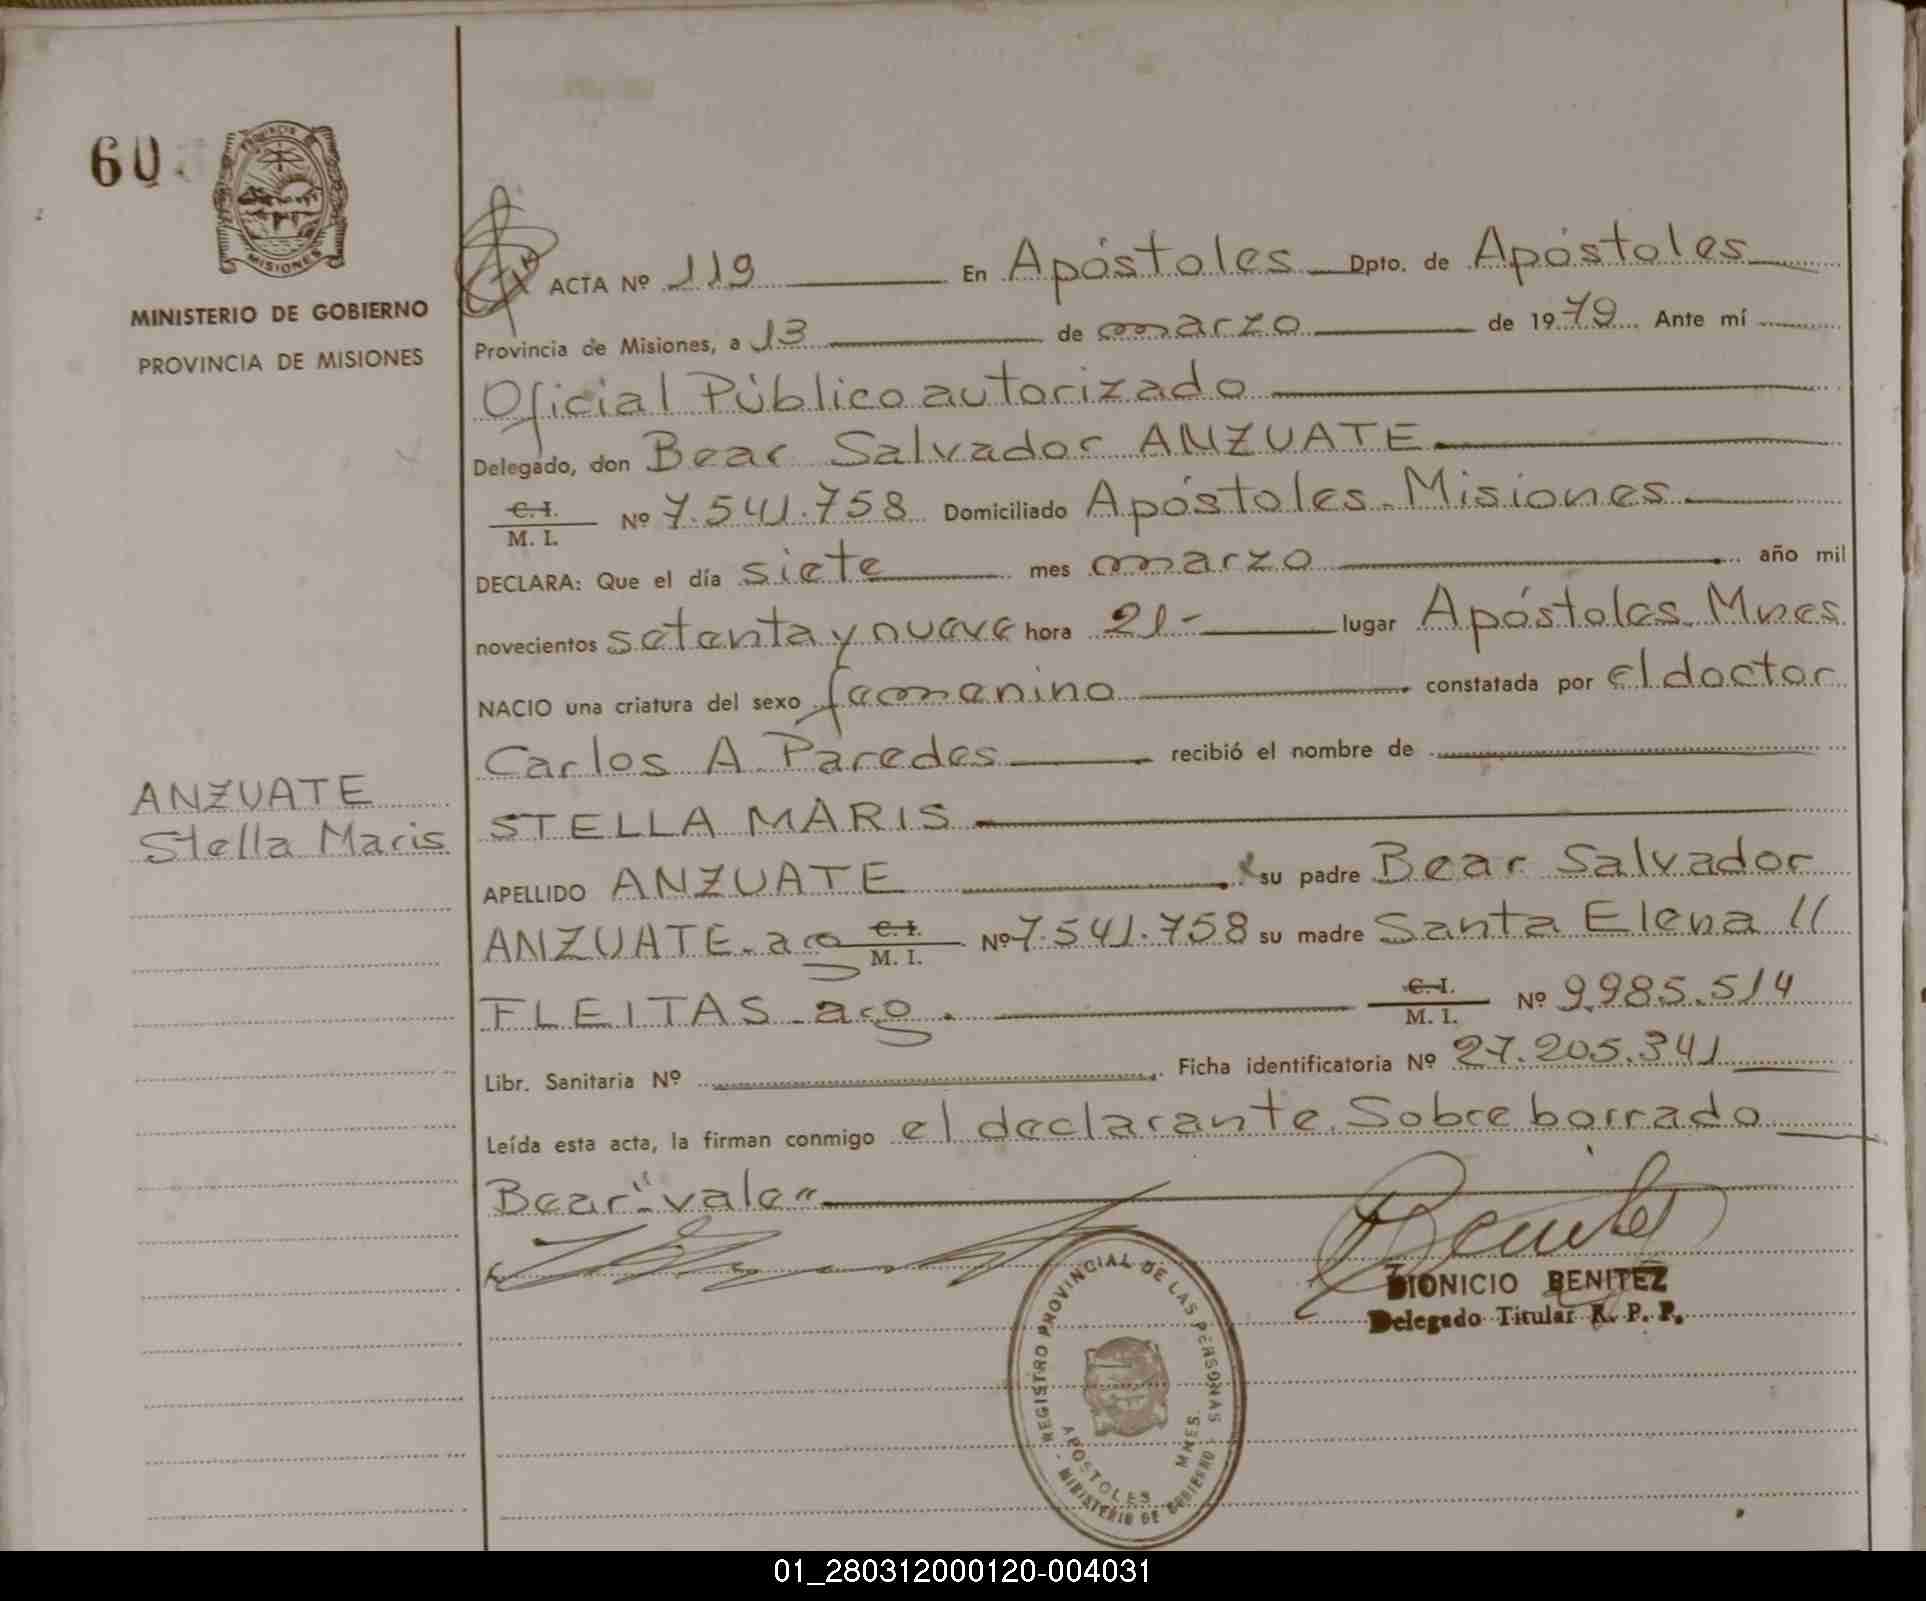 60
PROVINCIA
MISIONES
MINISTERIO DE GOBIERNO
PROVINCIA DE MISIONES
ACTA Nº 119 En Apóstoles Dpto. de Apóstoles
Provincia de Misiones, a 13 de marzo de 1979. Ante mí
Oficial Público autorizado
Delegado, don Bear Salvador ANZUATE
C. I. / M. I. Nº 7.541.758 Domiciliado Apóstoles. Misiones
DECLARA: Que el día siete mes marzo año mil
novecientos setenta y nueve hora 21- lugar Apóstoles. Mnes
NACIO una criatura del sexo femenino constatada por el doctor
Carlos A. Paredes recibió el nombre de
ANZUATE
Stella Maris
STELLA MARIS
APELLIDO ANZUATE su padre Bear Salvador
ANZUATE. arg C. I. / M. I. Nº 7.541.758 su madre Santa Elena //
FLEITAS arg. C. I. / M. I. Nº 9.985.514
Libr. Sanitaria Nº Ficha identificatoria Nº 27.205.341
Leída esta acta, la firman conmigo el declarante. Sobre borrado
Bear "vale"
DIONICIO BENITEZ
Delegado Titular R. P. P.
REGISTRO PROVINCIAL DE LAS PERSONAS
APOSTOLES MNES.
MINISTERIO DE GOBIERNO
01_280312000120-004031